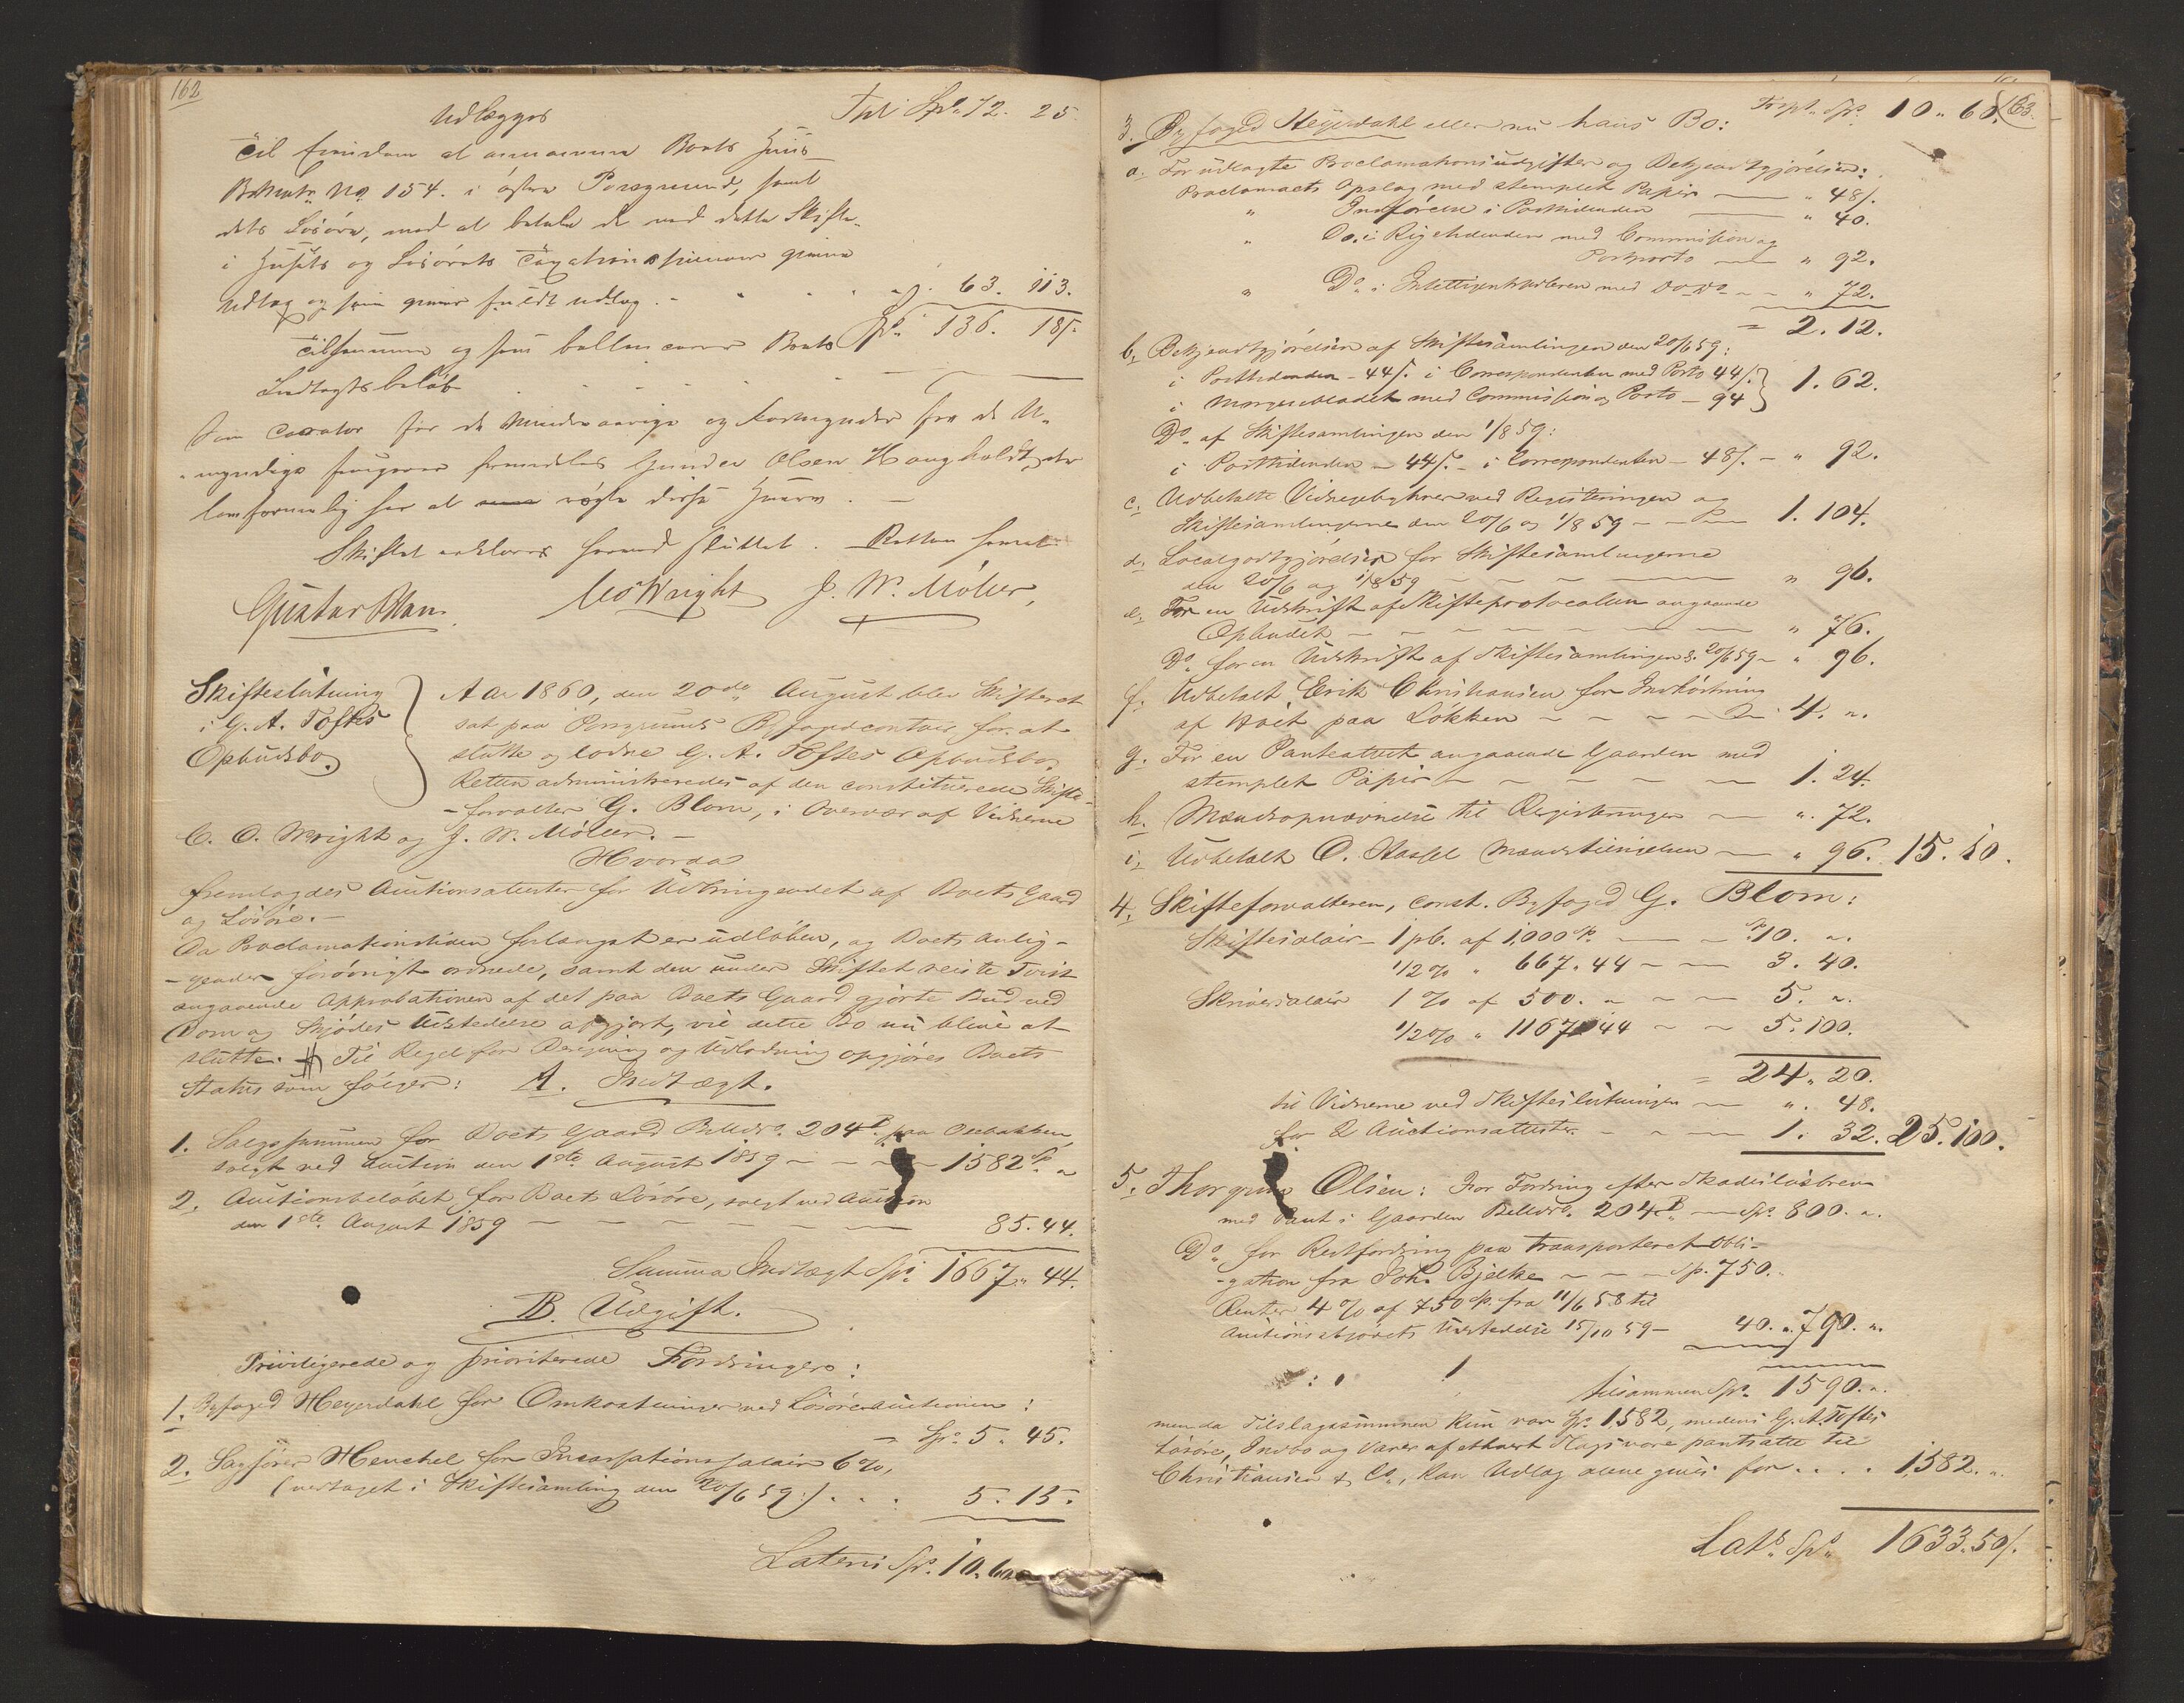 162
Udlægges Tpt Spd. 72. 25
til Enken at annamme Boets Huus
B. Matr. No. 154. i østre Porsgrund, samt
dets Løsøre, mod at betale de ved dette Skifte
i Husets og Løsørets Taxationssummer givne
Udlag og som giver fuldt Udlag. - - - - 63. 113.
Tilsammen og som ballancerer Boets Spd. 136. 18/.
Indtægtsbeløb
Som Curator for de Mindreaarige og Formynder for de U-
myndige fungerer fremdeles Gunder Olsen Haugholdt, der
lovformelig har at røgte disse Hverv. -
Skiftet erklæres hermed sluttet. Retten hævet
Gustav Blom. C O Wright J. W. Möller,
Skifteslutning
i G. A. Toftes
Opbudsbo.
Aar 1860, den 20de August blev Skifteret
sat paa Porsgrunds Byfogedcontoir for at
slutte og lodne G. A. Toftes Opbudsbo.
Retten administreredes af den constituerede Skifte-
-forvalter G. Blom, i Overvær af Vidnerne
C. O. Wright og J. W. Möller. -
Hvorda
fremlagdes Auctionsattester for Udbringendet af Boets Gaard
og Løsøre. -
Da Proclamationstiden forlængst er udløben, og Boets Anlig-
-gender forøvrigt ordnede, samt den under Skiftet reiste Tvist
angaaende Approbationen af det paa Boets Gaard gjorte Bud ved
Dom og Skjødes Udstedelse afgjort, vil dette Bo nu blive at
slutte. Til Regel for Deling og Udlodning opgjøres Boets
Status som følger: A. Indtægt.
1. Salgssummen for Boets Gaard 204 B paa Osebakken,
solgt ved Auction den 1ste August 1859 - - - 1582 Sp. "
2. Auctionsbeløbet for Boets Løsøre, solgt ved Auction
den 1ste August 1859 - - - - - - - 85. 44.
Summa Indtægt Spd. 1667. 44.
B. Udgift.
Priviligerede og prioriterede Fordringer:
1. Byfoged Heyerdahl for Omkostninger ved Løsøreauctionen:
- Spd. 5. 45.
2. Sagfører Henchel for Incassationssalair 6%,
(vedtaget i Skiftesamling den 20/6 59:) . . . 5. 15.
Lateris Spd. 10. 60
163.
Trspt. Spd. 10. 60.
3. Byfoged Heyerdahl eller nu hans Bo:
a. For udlagte Proclamationsudgifter og Bekjendtgjørelser:
Proclamaets Opslag med stemplet Papir — " 48/.
" Indførelse i Posttidenden — " 40.
" Do. i Rigstidenden med Commission og
Postporto — " 92.
" Do. i Intelligentssedlerne med Do Do - - " 72.
= 2. 12.
b, Bekjendtgjørelsen af Skiftesamlingen den 20/6 59:
i Posttidenden - 44/. i Correspondenten med Porto 44/.
i Morgenbladet med Commission og Porto - 94 } 1. 62.
Do. af Skiftesamlingen den 1/8 59:
i Posttidenden - 44/. - i Correspondenten - 48/. - " 92.
c. Udbetalte Vidnegebyhrer ved Registeringen og
Skiftesamlingerne den 20/6 og 1/8 59 - - 1. 104.
d. Localgodtgjørelser for Skiftesamlingerne
den 20/6 og 1/8 59 - - - — " 96.
e. For en Udskrift af Skifteprotocollen angaaende
Opbudet - - - - - - - — " 76.
Do. for en Udskrift af Skiftesamlingen d. 20/6 59 - " 96.
f. Udbetalt Erik Christiansen for Indkjørsning
af paa Løkken - - - - 4. "
g. For en Panteattest angaaende Gaarden med
stemplet Papir - - - - - - 1. 24.
h. Mændsopnævnelse til Registeringen — " 72.
i, Udbetalt O. Hassel — " 96. 15. 10.
4. Skifteforvalteren, const. Byfoged G. Blom:
Skiftesalair - 1 pC. af 1,000 Sp. — - Sp. 10. "
1/2 % " 667. 44 - — 3. 40.
Skriversalair 1 % af 500. " - — 5. "
1/2 % " 1167. 44 - - 5. 100.
= 24. 20.
til Vidnerne ved Skifteslutningen — " 48.
for 2 Auctionsattester - - - — 1. 32. 25. 100.
5. Thorgrim Olsen: For Fordring efter Skadesløsbrev
med Pant i Gaarden 204 B — Spd. 800. "
Do. for Restfordring paa transporteret Obli-
-gation fra Joh. Bjelke - - - Sp. 750. "
Renter 4 % af 750 Sp. fra 11/6 58 til
Auctionsskjødets Udstedelse 15/10 59 - 40. " 790. "
tilsammen Spd. 1590. "
men da Tilslagssummen kun var Spd. 1582, medens G. A. Toftes
Løsøre, Indbo og Varer af ethvert Slags vare pantsatte til
Christiansen & Co., kan Udlag alene gives for . . . . 1,582. "
Lats. Spd. 1633. 50/.